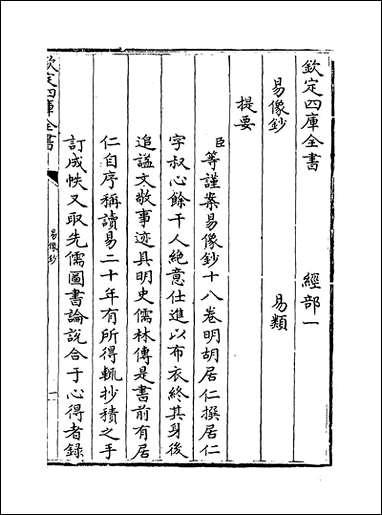 欽定四庫全書 經部一
易像鈔 易類
提要
臣等謹案易像鈔十八卷明胡居仁撰居仁
字叔心餘干人絶意仕進以布衣終其身後
追諡文敬事迹具明史儒林傳是書前有居
仁自序稱讀易二十年有所得輒抄積之手
訂成帙又取先儒圖書論說合于心得者録
欽定四庫全書
易像鈔
一